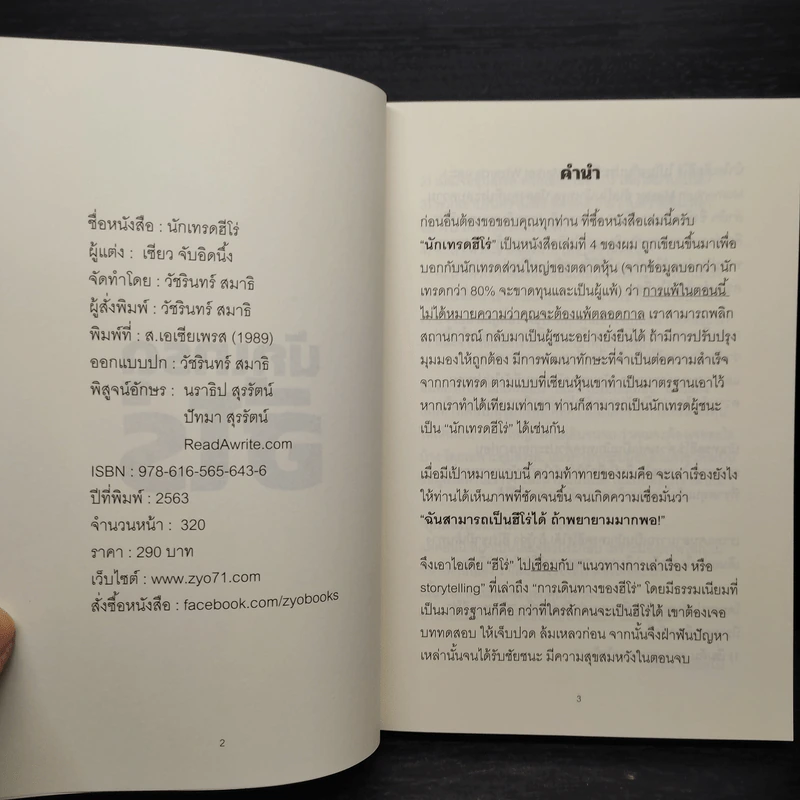 ชื่อหนังสือ : นักเทรดฮีโร่
ผู้แต่ง : เซียว จับอิดนึ้ง
จัดทำโดย : วัชรินทร์ สมาธิ
ผู้สั่งพิมพ์ : วัชรินทร์ สมาธิ
พิมพ์ที่ : ส.เอเซียเพรส (1989)
ออกแบบปก : วัชรินทร์ สมาธิ
พิสูจน์อักษร : นราธิป สุรรัตน์
ปัทมา สุรรัตน์
ReadAwrite.com
ISBN : 978-616-565-643-6
ปีที่พิมพ์ : 2563
จำนวนหน้า : 320
ราคา : 290 บาท
เว็บไซต์ : www.zyo71.com
สั่งซื้อหนังสือ : facebook.com/zyobooks
2
คำนำ
ก่อนอื่นต้องขอขอบคุณทุกท่าน ที่ซื้อหนังสือเล่มนี้ครับ
"นักเทรดฮีโร่" เป็นหนังสือเล่มที่ 4 ของผม ถูกเขียนขึ้นมาเพื่อ
บอกกับนักเทรดส่วนใหญ่ของตลาดหุ้น (จากข้อมูลบอกว่า นัก
เทรดกว่า 80% จะขาดทุนและเป็นผู้แพ้) ว่า การแพ้ในตอนนี้
ไม่ได้หมายความว่าคุณจะต้องแพ้ตลอดกาล เราสามารถพลิก
สถานการณ์ กลับมาเป็นผู้ชนะอย่างยั่งยืนได้ ถ้ามีการปรับปรุง
มุมมองให้ถูกต้อง มีการพัฒนาทักษะที่จำเป็นต่อความสำเร็จ
จากการเทรด ตามแบบที่เซียนหุ้นเขาทำเป็นมาตรฐานเอาไว้
หากเราทำได้เทียมเท่าเขา ท่านก็สามารถเป็นนักเทรดผู้ชนะ
เป็น "นักเทรดฮีโร่" ได้เช่นกัน
เมื่อมีเป้าหมายแบบนี้ ความท้าทายของผมคือ จะเล่าเรื่องยังไง
ให้ท่านได้เห็นภาพที่ชัดเจนขึ้น จนเกิดความเชื่อมั่นว่า
"ฉันสามารถเป็นฮีโร่ได้ ถ้าพยายามมากพอ!"
จึงเอาไอเดีย "ฮีโร่" ไปเชื่อมกับ "แนวทางการเล่าเรื่อง หรือ
storytelling" ที่เล่าถึง "การเดินทางของฮีโร่" โดยมีธรรมเนียมที่
เป็นมาตรฐานก็คือ กว่าที่ใครสักคนจะเป็นฮีโร่ได้ เขาต้องเจอ
บททดสอบ ให้เจ็บปวด ล้มเหลวก่อน จากนั้นจึงฝ่าฟันปัญหา
เหล่านั้นจนได้รับชัยชนะ มีความสุขสมหวังในตอนจบ
3